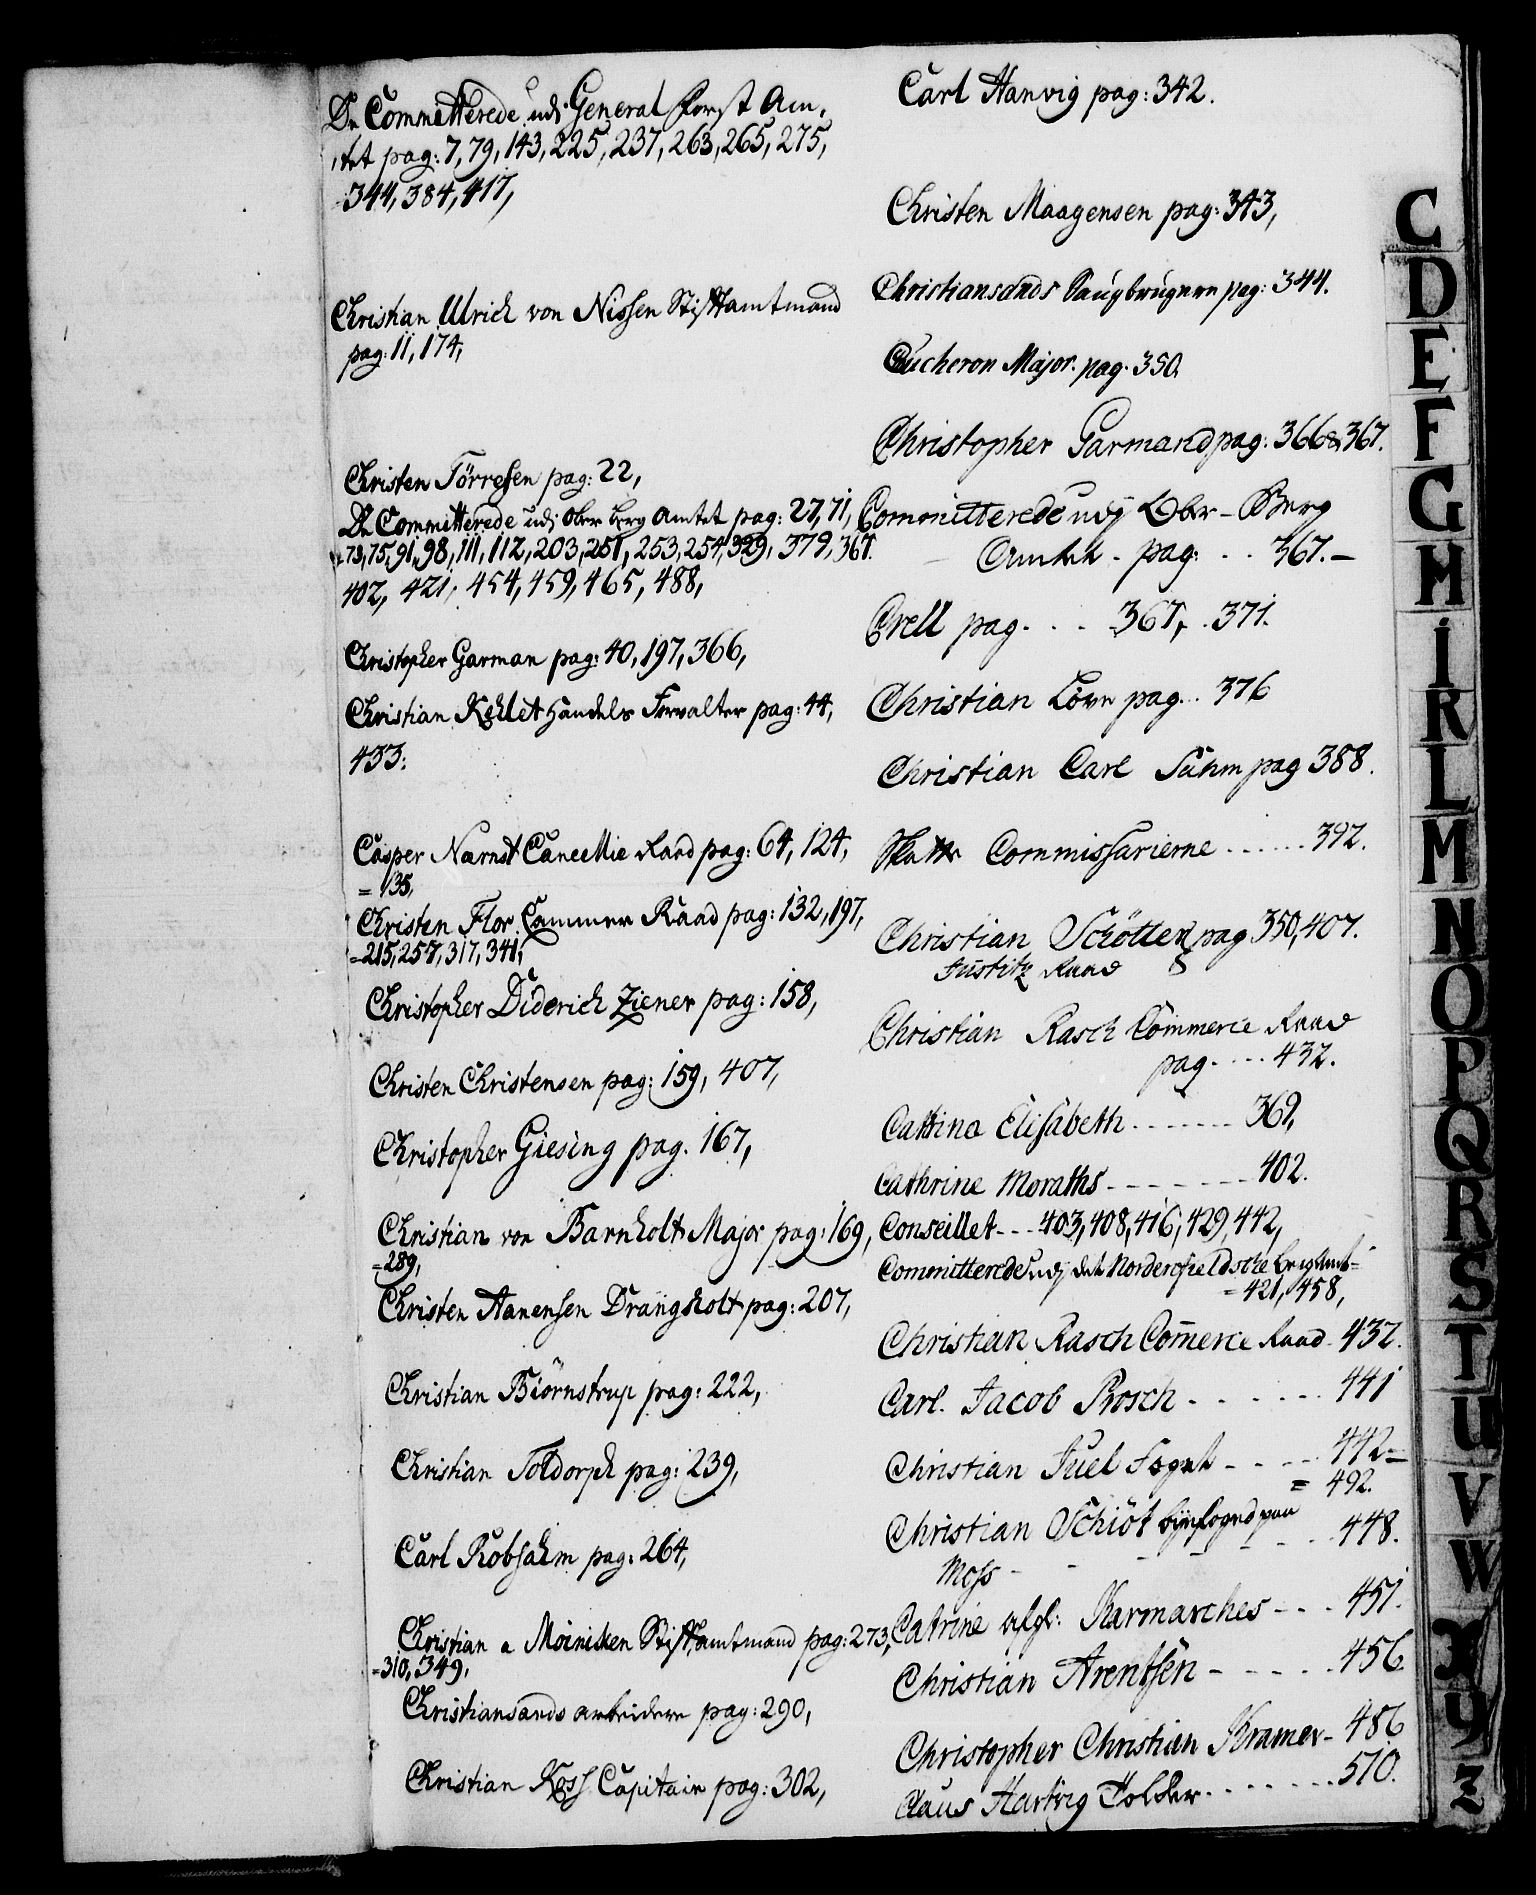 De Committerede udi General Forst Am,
,tet pag: 7, 79, 143, 225, 237, 263, 265, 275,
344, 384, 417,
Christian Ulrich von Nissen Stiftamtmand
pag: 11, 174,
Christen Törresen pag: 22,
De Committerede udi Ober berg Amtet pag: 27, 71,
73, 75, 91, 98, 111, 112, 203, 251, 253, 254, 329, 379, 367.
402, 421, 454, 459, 465, 488,
Christopher Garman pag: 40, 197, 366,
Christian Kollet Handels Forvalter pag: 44,
433:
Casper Nærnst Cancellie Raad pag: 64, 124,
= 135,
Christen Flor Cammer Raad pag: 132, 197,
=215, 257, 317, 341,
Christopher Diderich Ziener pag: 158,
Christen Christensen pag: 159, 407,
Christopher Giesing pag. 167,
Christian von Barnholt Major pag: 169,
=289,
Christen Aanensen Drangsholt pag: 207,
Christian Biörnstrup pag: 222,
Christian Toldorph pag: 239,
Carl Robsahm pag: 264,
Christian a Moinichen Stiftamtmand pag: 273,
=310, 349,
Christiansands arbeidere pag: 290,
Christian Koss Capitain pag: 302,
Carl Hanvig pag: 342.
Christen Maagensen pag: 343,
Christiansands Saugbrugere pag: 344.
Coucheron Major. pag. 350.
Christopher Garmand pag: 366 & 367.
Committerede udj Ober-Berg
Amtet - pag: . . 367.-
Crell pag. . . 367, . 371.
Christian Löve pag... 376
Christian Carl Suhm pag 388.
Skatte Commissarierne ...... 392.
Christian Schötter pag 350, 407.
Justitz Raad
Christian Rasch Commerce Raad
pag. ... 432.
Catrina Elisabeth ....... 369,
Cathrine Moraths - - - - - - - 402.
Conseillet - - - 403, 408, 416, 429, 442,
Committerede udj det Nordenfieldske bergamt=
= 421, 458,
Christian Rasch Commerce Raad. 432.
Carl. Jacob Prosch - . . - . . 441
Christian Juel Foget - - - - 442=
= 492.
Christian Schiöt byefoged paa
Moss - - - - - - . . 448.
Catrine afgl: Karmarches - - . 451.
Christian Arentsen - - - - . . 456
Christopher Christian Kramer - 486
Claus Hartvig Tolder. . . . . . . 510.
C
D
E
F
G
H
I
R
L
M
N
O
P
Q
R
S
T
U
V
W
X
Y
Z